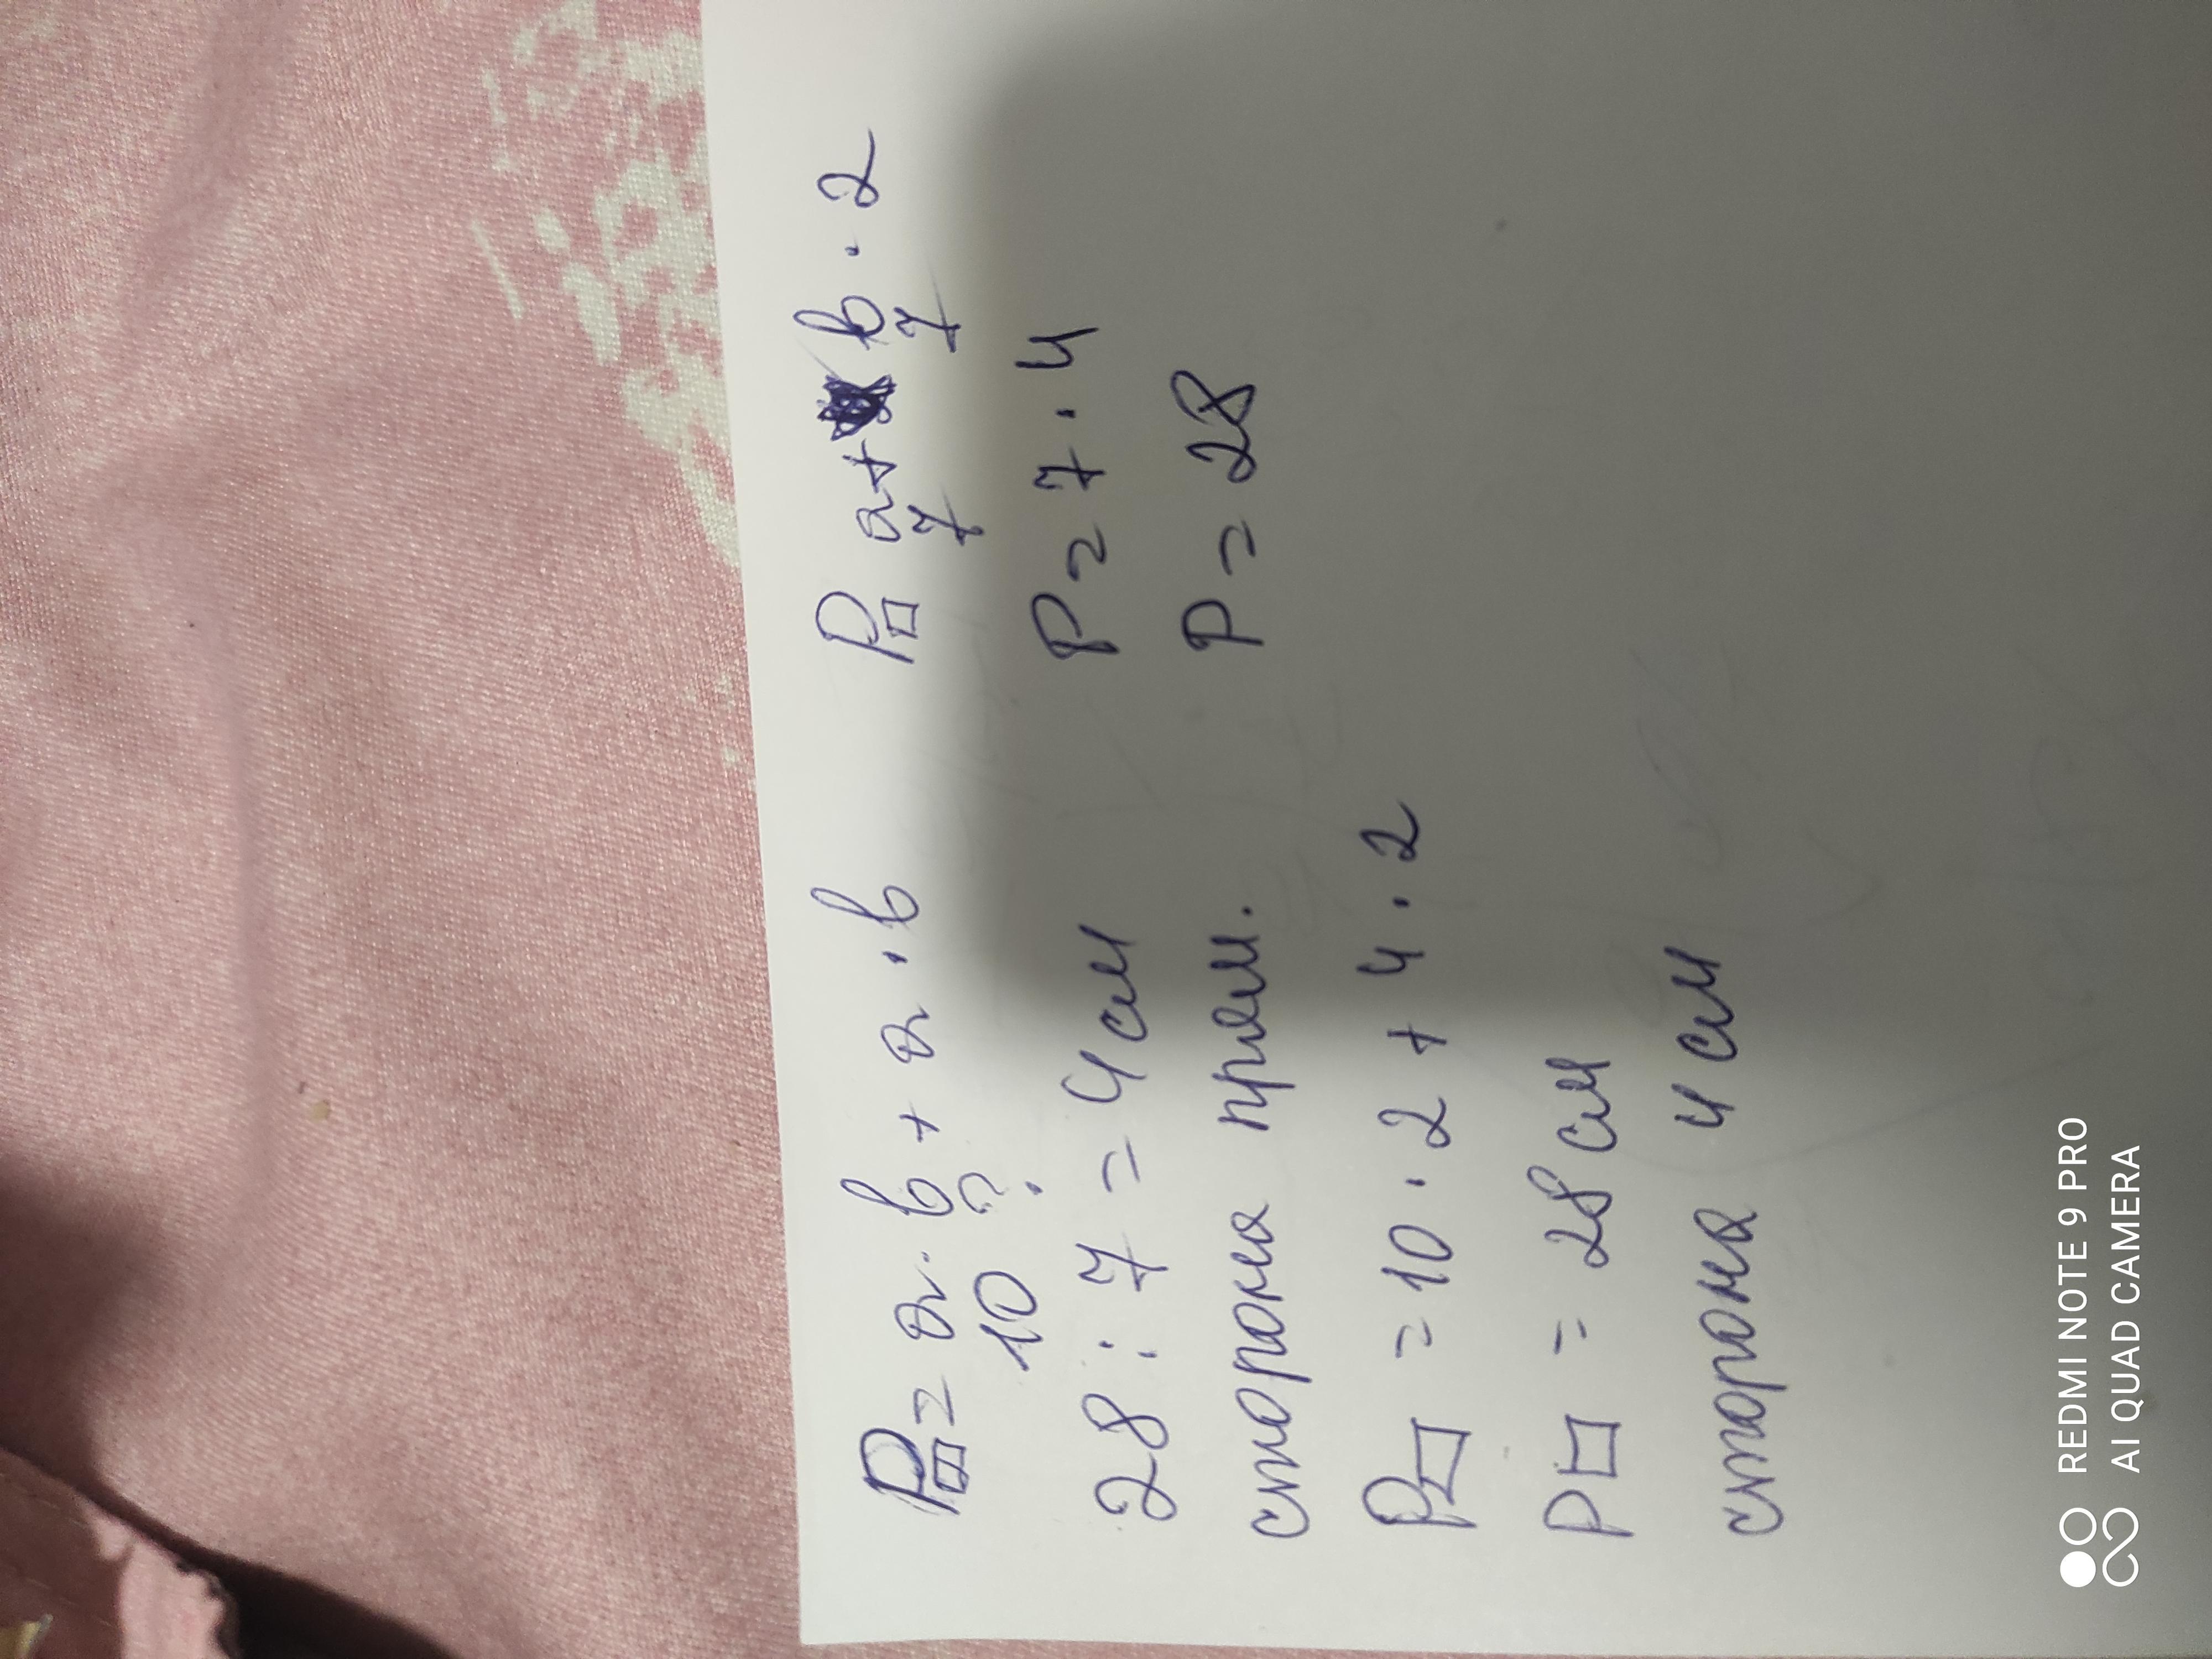 P□= a·b + a·b
10 ?
28 : 7 = 4 см
сторона прям.
P□ = 10 · 2 + 4 · 2
P□ = 28 см
сторона 4 см
P□ a+ b · 2
7 7
P = 7 · 4
P = 28
REDMI NOTE 9 PRO
AI QUAD CAMERA